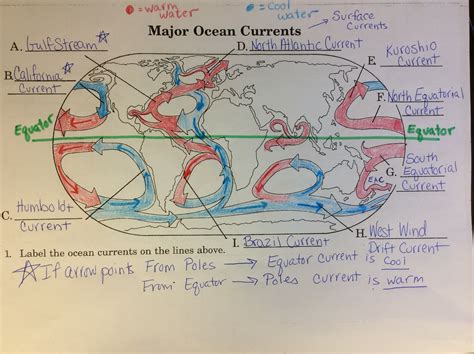 = warm water
= cool water
→ Surface Currents
Major Ocean Currents
A. Gulf Stream
B. California Current
C. Humboldt Current
D. North Atlantic Current
E Kuroshio Current
F. North Equatorial Current
Equator
Equator
G. South Equatorial Current
EAC
H. West Wind Drift Current
I. Brazil Current
1. Label the ocean currents on the lines above.
If arrow points From Poles → Equator current is cool
From Equator → Poles current is warm